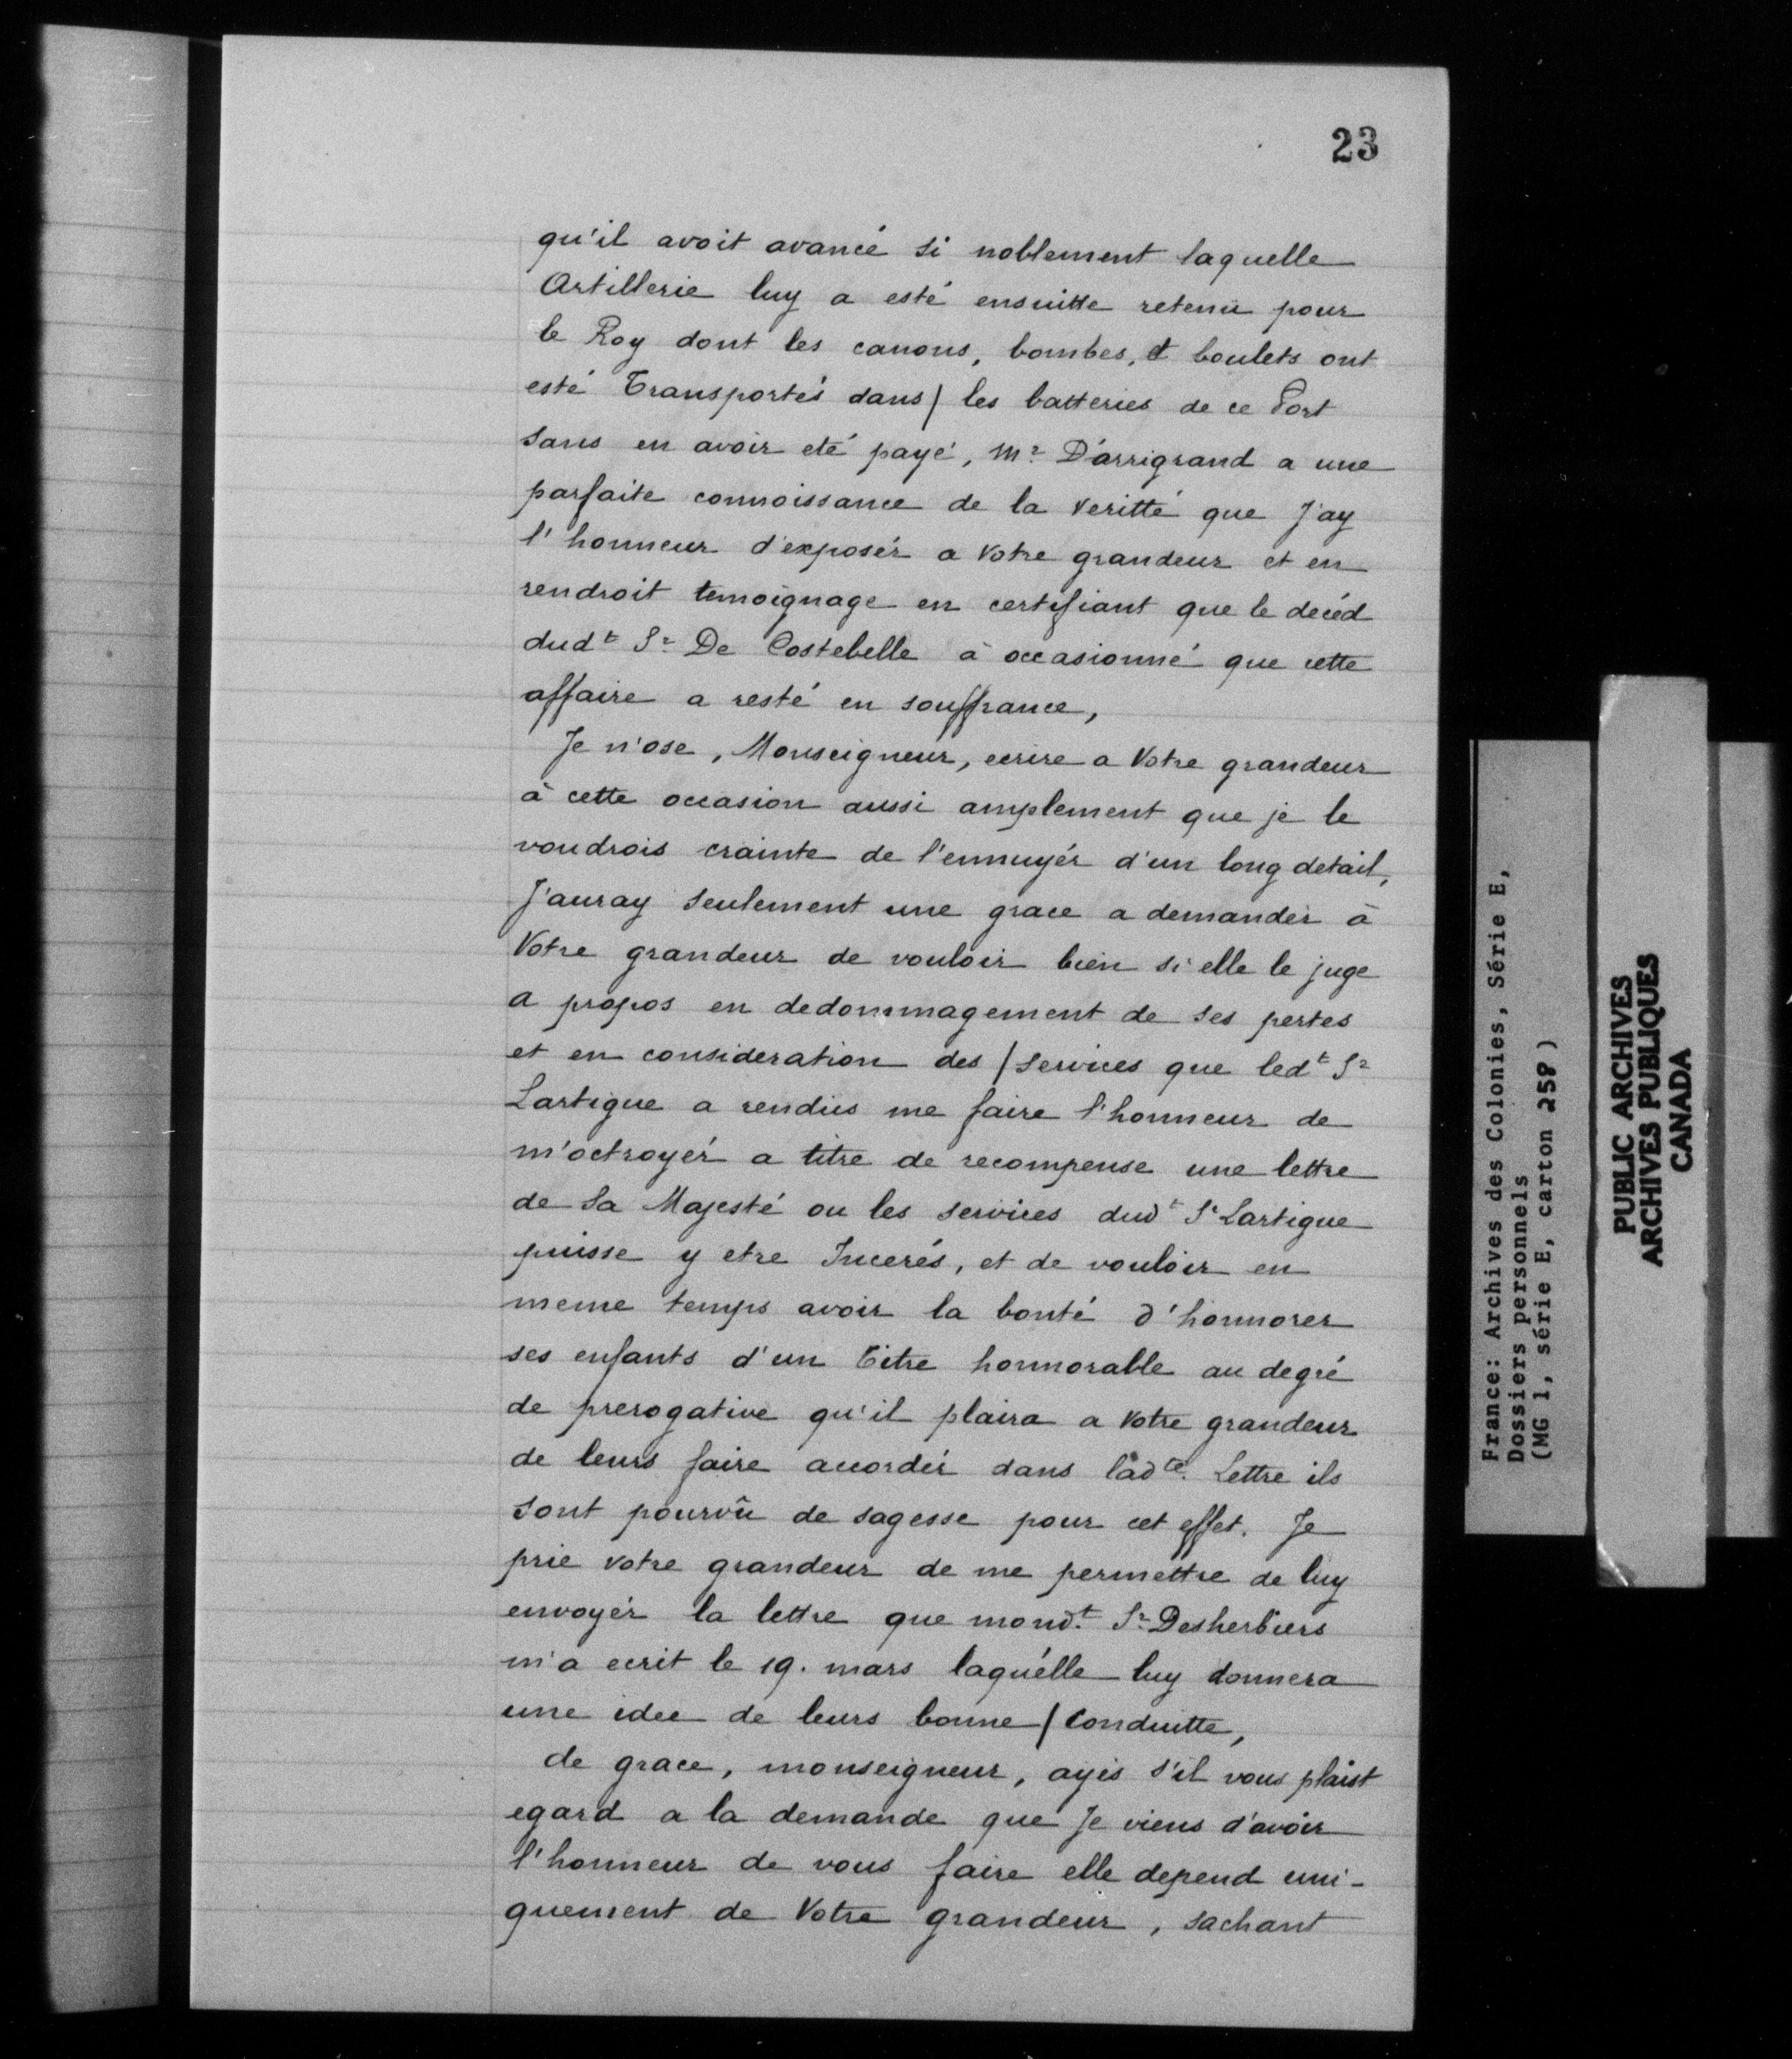 23
qu'il avoit avancé si noblement laquelle
Artillerie luy a esté ensuitte retenü pour
le Roy dont les canons, bombes, et boulets ont
esté Transportés dans / les batteries de ce Port
sans en avoir eté payé, Mr. D'arrigrand a une
parfaite connoissance de la veritté que J'ay
l'honneur d'exposér a Votre grandeur et en
rendroit temoignage en certifiant que le decéd
dudt Sr De Costebelle à occasionné que cette
affaire a resté en souffrance,
Je n'ose, Monseigneur, ecrire a Votre grandeur
à cette occasion aussi amplement que je le
voudrois crainte de l'ennuyér d'un long detail,
J'auray seulement une grace a demandér à
Votre grandeur de vouloir bien si elle le juge
a propos en dedommagement de ses pertes
et en consideration des / services que ledt Sr
Lartigue a rendüs me faire l'honneur de
m'octroyér a titre de recompense une lettre
de Sa Majesté ou les services dudt Sr Lartigue
puisse y etre Incerés, et de vouloir en
meme temps avoir la bonté d'honnorer
ses enfants d'un Titre honnorable au degré
de prerogative qu'il plaira a Votre grandeur
de leurs faire accordér dans ladte. Lettre ils
sont pourvû de sagesse pour cet effet. Je
prie votre grandeur de me permettre de luy
envoyér la lettre que mondt. Sr Desherbiers
m'a ecrit le 19. mars laquélle luy donnera
une idee de leurs bonne / Conduitte,
de grace, monseigneur, ayés s'il vous plaist
egard a la demande que Je viens d'avoir
l'honneur de vous faire elle depend uni-
quement de Votre grandeur, sachant
France: Archives des Colonies, Série E,
Dossiers personnels
(MG 1, série E, carton 258)
PUBLIC ARCHIVES
ARCHIVES PUBLIQUES
CANADA